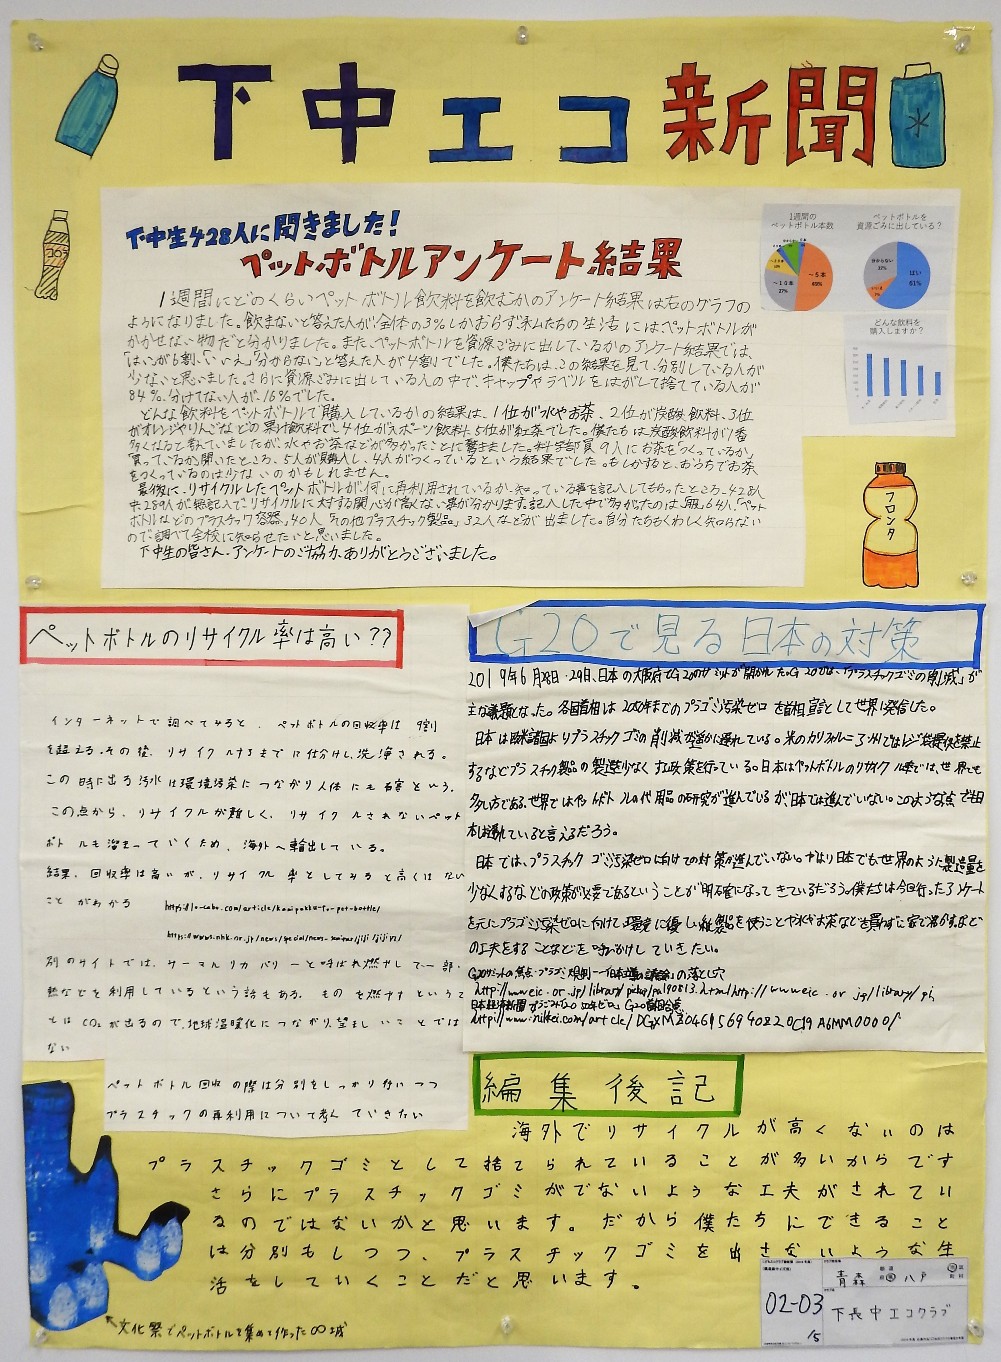 下中エコ新聞
水
下中生428人に聞きました!
ペットボトルアンケート結果
1週間の
ペットボトル本数
~5本
69%
~10本
27%
ペットボトルを
資源ごみに出している?
はい
61%
分からない
32%
いいえ
7%
どんな飲料を
購入しますか?
1週間にどのくらいペットボトル飲料を飲むかのアンケート結果は右のグラフの
ようになりました。飲まないと答えた人が全体の3%しかおらず私たちの生活にはペットボトルが
かかせない物だと分かりました。また、ペットボトルを資源ごみに出しているかのアンケート結果では、
「はい」が6割、「いいえ」「分からない」と答えた人が4割でした。僕たちは、この結果を見て、分別している人が
少ないと思いました。さらに資源ごみに出している人の中で、キャップやラベルをはがして捨てている人が
84%、分けてない人が、16%でした。
どんな飲料をペットボトルで購入しているかの結果は、1位が水やお茶、2位が炭酸飲料、3位
がオレンジやりんごなどの果汁飲料で、4位がスポーツ飲料、5位が紅茶でした。僕たちは炭酸飲料が1番
多くなると考えていましたが、水やお茶などが多かったことに驚きました。科学部員9人にお茶を「つくっているか」
「買っているか」聞いたところ、5人が購入し、4人がつくっているという結果でした。もしかすると、おうちでお茶
をつくっているのは少ないのかもしれません。
最後に、リサイクルしたペットボトルが何に再利用されているか、知っている事を記入してもらったところ、428人
中289人が無記入でリサイクルに対する関心が高くない事が分かります。記入した中で多かったのは「服」64人、「ペット
ボトルなどのプラスチック容器」40人「その他プラスチック製品」32人などが出ました。自分たちもくわしく知らない
ので調べて全校に知らせたいと思いました。
下中生の皆さん、アンケートのご協力、ありがとうございました。
フロンタ
ペットボトルのリサイクル率は高い??
インターネットで調べてみると、ペットボトルの回収率は9割
を超える。その後、リサイクルするまでに仕分けし、洗浄される。
この時に出る汚水は環境汚染につながり人体にも有害という。
この点から、リサイクルが難しく、リサイクルされないペット
ボトルも溜まっていくため、海外へ輸出している。
結果、回収率は高いが、リサイクル率としてみると高くはない
ことがわかる
別のサイトでは、サーマルリカバリーと呼ばれ燃やして一部、
熱などを利用しているという話もある。ものを燃やすというこ
とはCO2が出るので、地球温暖化につながり、望ましいことでは
ない
ペットボトル回収の際は分別をしっかり行いつつ
プラスチックの再利用について考えていきたい
G20で見る日本の対策
2019年6月28日・29日、日本の大阪府でG20のサミットが開かれた。G20では、「プラスチックゴミの削減」が
主な議題となった。各国首相は2050年までのプラゴミ汚染ゼロを首相宣言として世界に発信した。
日本は欧米諸国よりプラスチックゴミの削減が遥かに遅れている。米のカリフォルニア州ではレジ袋提供を禁止
するなどプラスチック製品の製造少なくする政策を行っている。日本はペットボトルのリサイクル率では、世界でも
多い方である。世界ではペットボトルの代用品の研究が進んでいるが日本では進んでいない。このような点でも日
本は遅れていると言えるだろう。
日本では、プラスチックゴミ汚染ゼロに向けての対策が進んでいない。やはり日本でも、世界のように製造量を
少なくするなどの政策が必要であるということが明確になってきているだろう。僕たちは今回行ったアンケート
を元にプラゴミ汚染ゼロに向けて環境に優しい紙製品を使うことや水やお茶などを買わずに家で沸かすなど
の工夫をすることなどを呼びかけしていきたい。
G20サミットの焦点・プラゴミ規制―「日本主導の議論」の落とし穴
日本経済新聞 プラごみ「2050年ゼロ」G20首脳合意
編集後記
海外でリサイクルが高くないのは
プラスチックゴミとして捨てられていることが多いからです
さらにプラスチックゴミがでないような工夫がされてい
るのではないかと思います。だから僕たちにできること
は分別もしつつ、プラスチックゴミを出さないような生
活をしていくことだと思います。
文化祭でペットボトルを集めて作った○○城
青森 八戸
02-03
下長中エコクラブ
1/5